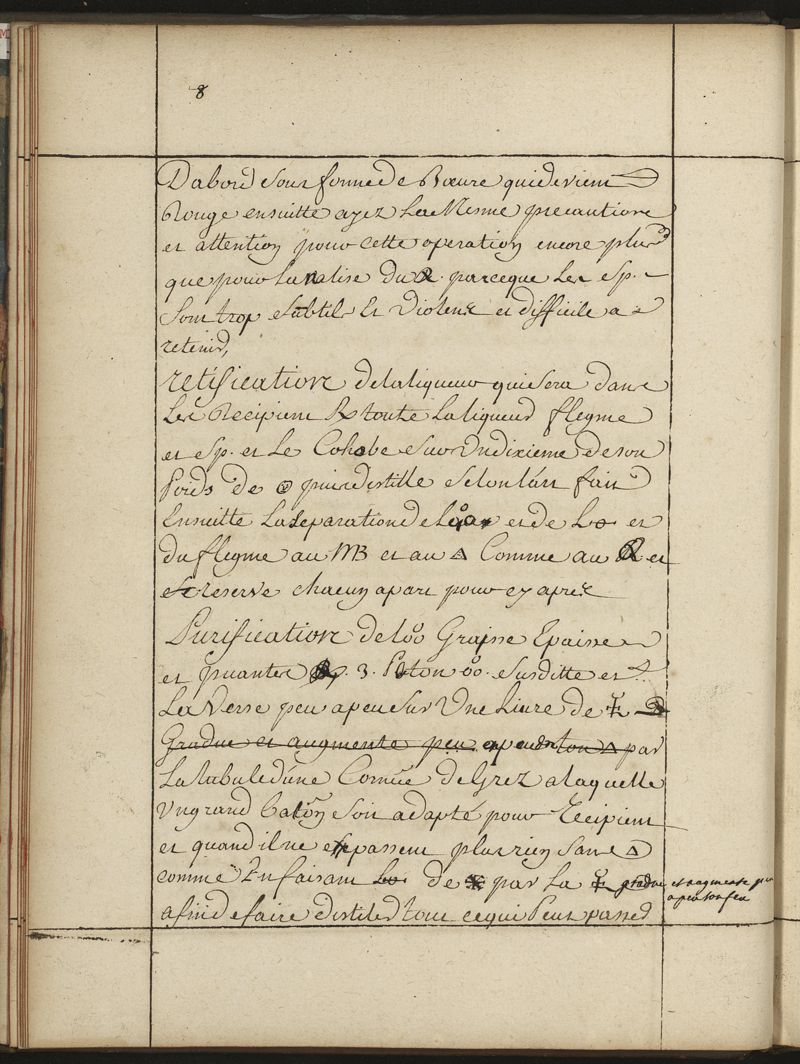 8
Dabord sous forme de Bœure qui devient
Rouge ensuitte ayez La Mesme precaution
et attention pour cette operation encore plus
que pour Lanalise du parceque Les Sp.
Sont trop subtils Et Violens et difficile a
retenir,
retification de la liqueur qui sera dans
Les Recipient toute La liqueur flegme
et Sp. et Le Cohobe sur Un dixieme de son
Poids de puis distille selon l'art fait
Ensuitte La separation de et de et
du flegme au MB et au △ Comme au et
reserve chacun apart pour cy apres
Purification de Grasse Epaisse
et puante 3. ton susditte et
La Verse peu apeu sur Une Livre de
Gradue et augmente peu apeu ton △ par
La tubule d'une Cornüe de Grez a laquelle
Un grand balon soit adapté pour Recipient
et quand il ne passent plus rien sans △
comme En faisant de par La gradue et augmente peu
apeu ton feu
afin de faire distiler tout ce qui Peut passer